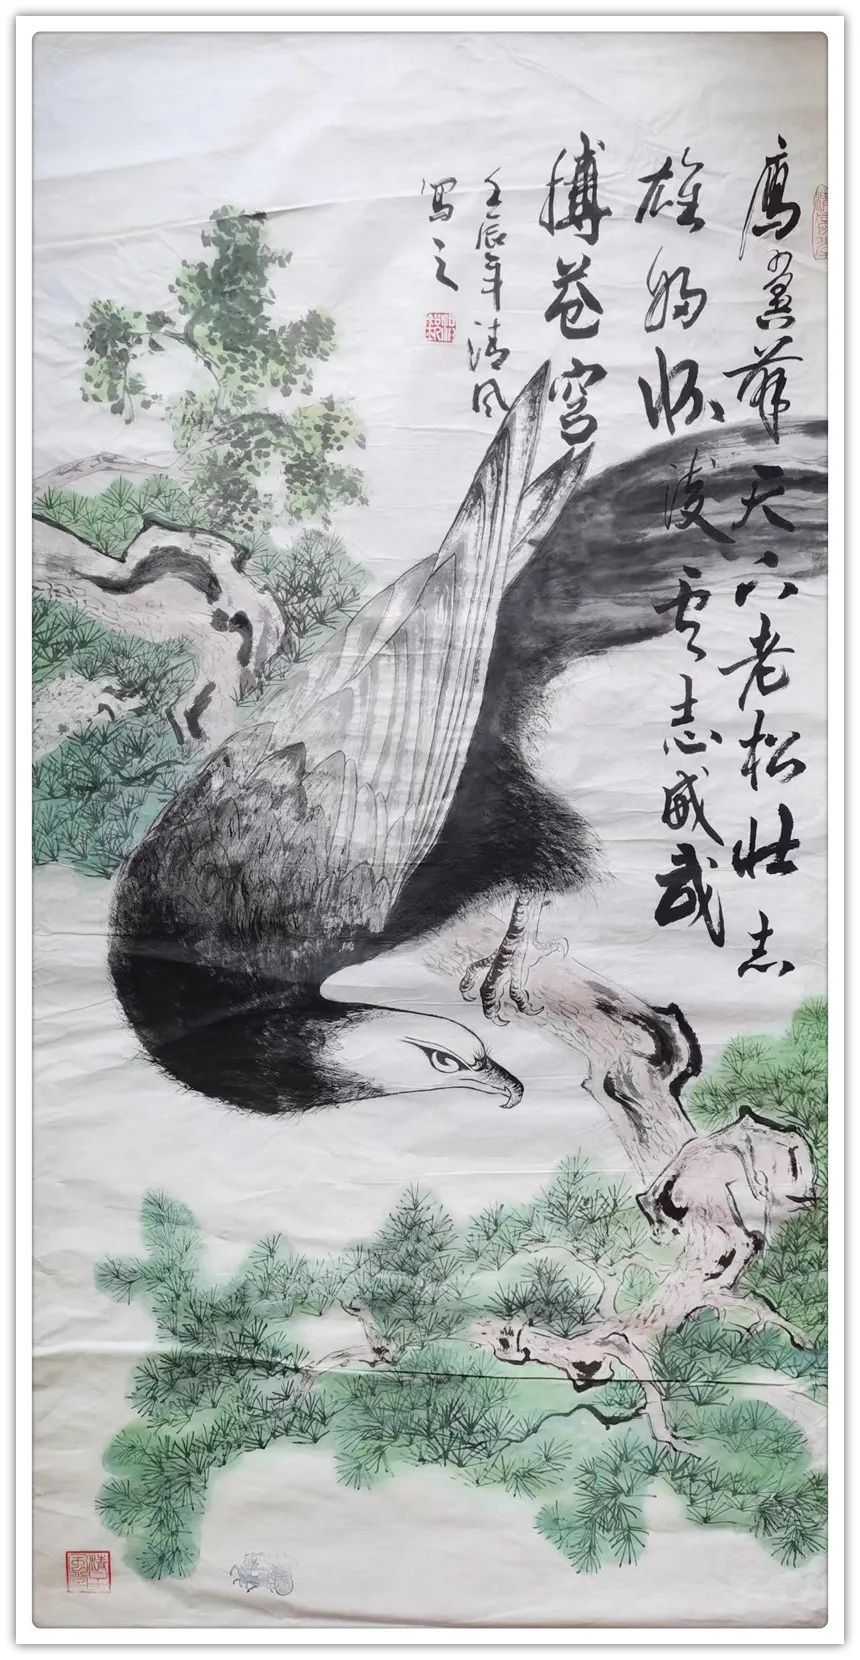 鹰翼天下老松壮志
雄怀凌云志威武
搏苍穹
壬辰年清风
写之